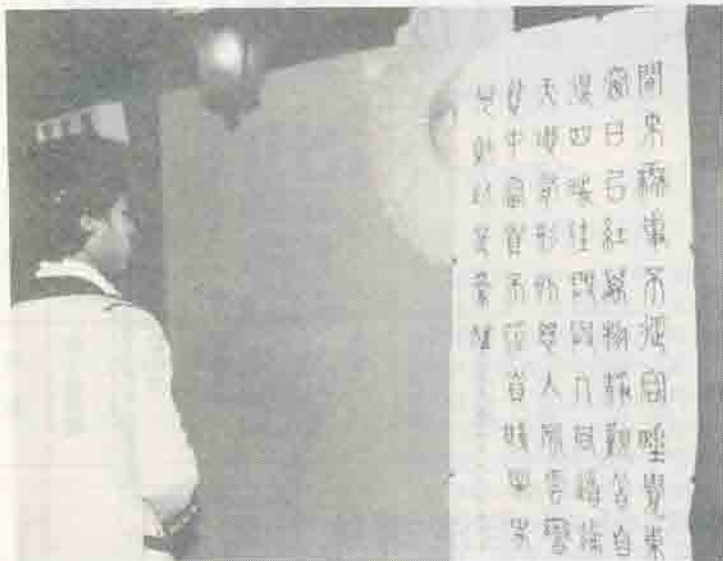 閒來無事不從容睡覺東
窗日已紅萬物靜觀皆自
得四時佳興與人同道通
天地有形外思入風雲變
態中富貴不淫貧賤樂男
兒到此是豪雄